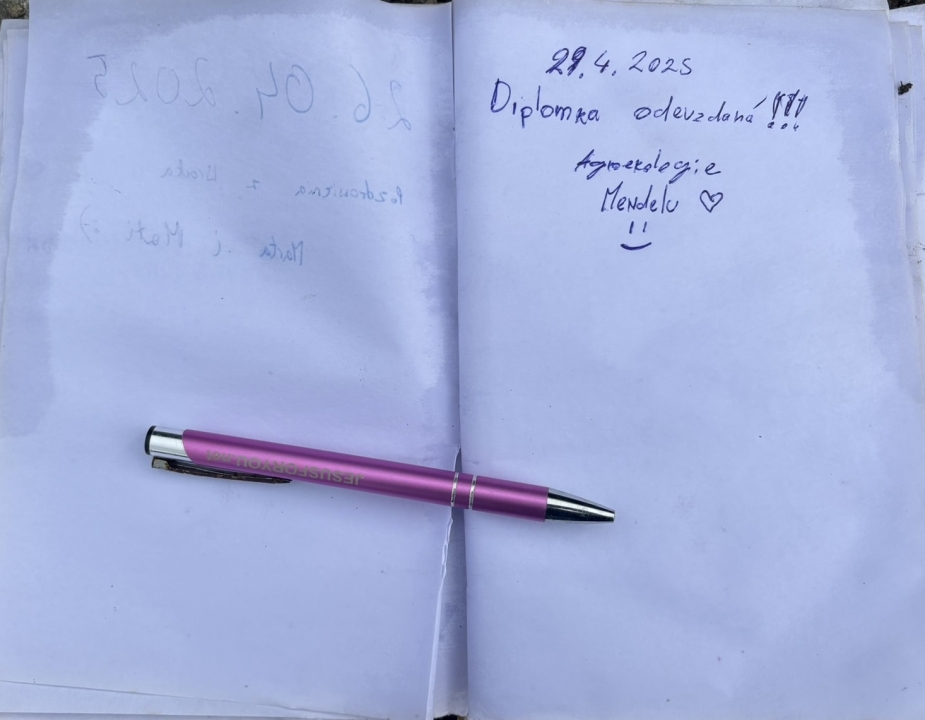 26.04.2025
Pozdrowienia z
Marta i Mati :)
29.4.2025
Diplomka odevzdaná!!!
Agroekologie
Mendelu ♡
JESUSFORYOU.net